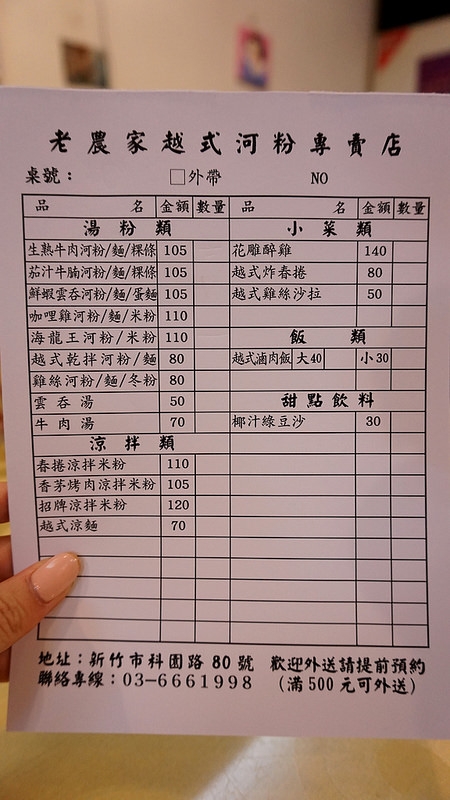 老農家越式河粉專賣店
桌號： □外帶 NO
品名 金額 數量 品名 金額 數量
湯粉類
生熟牛肉河粉/麵/粿條 105
茄汁牛腩河粉/麵/粿條 105
鮮蝦雲吞河粉/麵/蛋麵 105
咖哩雞河粉/麵/米粉 110
海龍王河粉/米粉 110
越式乾拌河粉/麵 80
雞絲河粉/麵/冬粉 80
雲吞湯 50
牛肉湯 70
涼拌類
春捲涼拌米粉 110
香茅烤肉涼拌米粉 105
招牌涼拌米粉 120
越式涼麵 70
小菜類
花雕醉雞 140
越式炸春捲 80
越式雞絲沙拉 50
飯類
越式滷肉飯 大40 小30
甜點飲料
椰汁綠豆沙 30
地址：新竹市科園路 80 號 歡迎外送請提前預約
聯絡專線：03-6661998 (滿 500 元可外送)